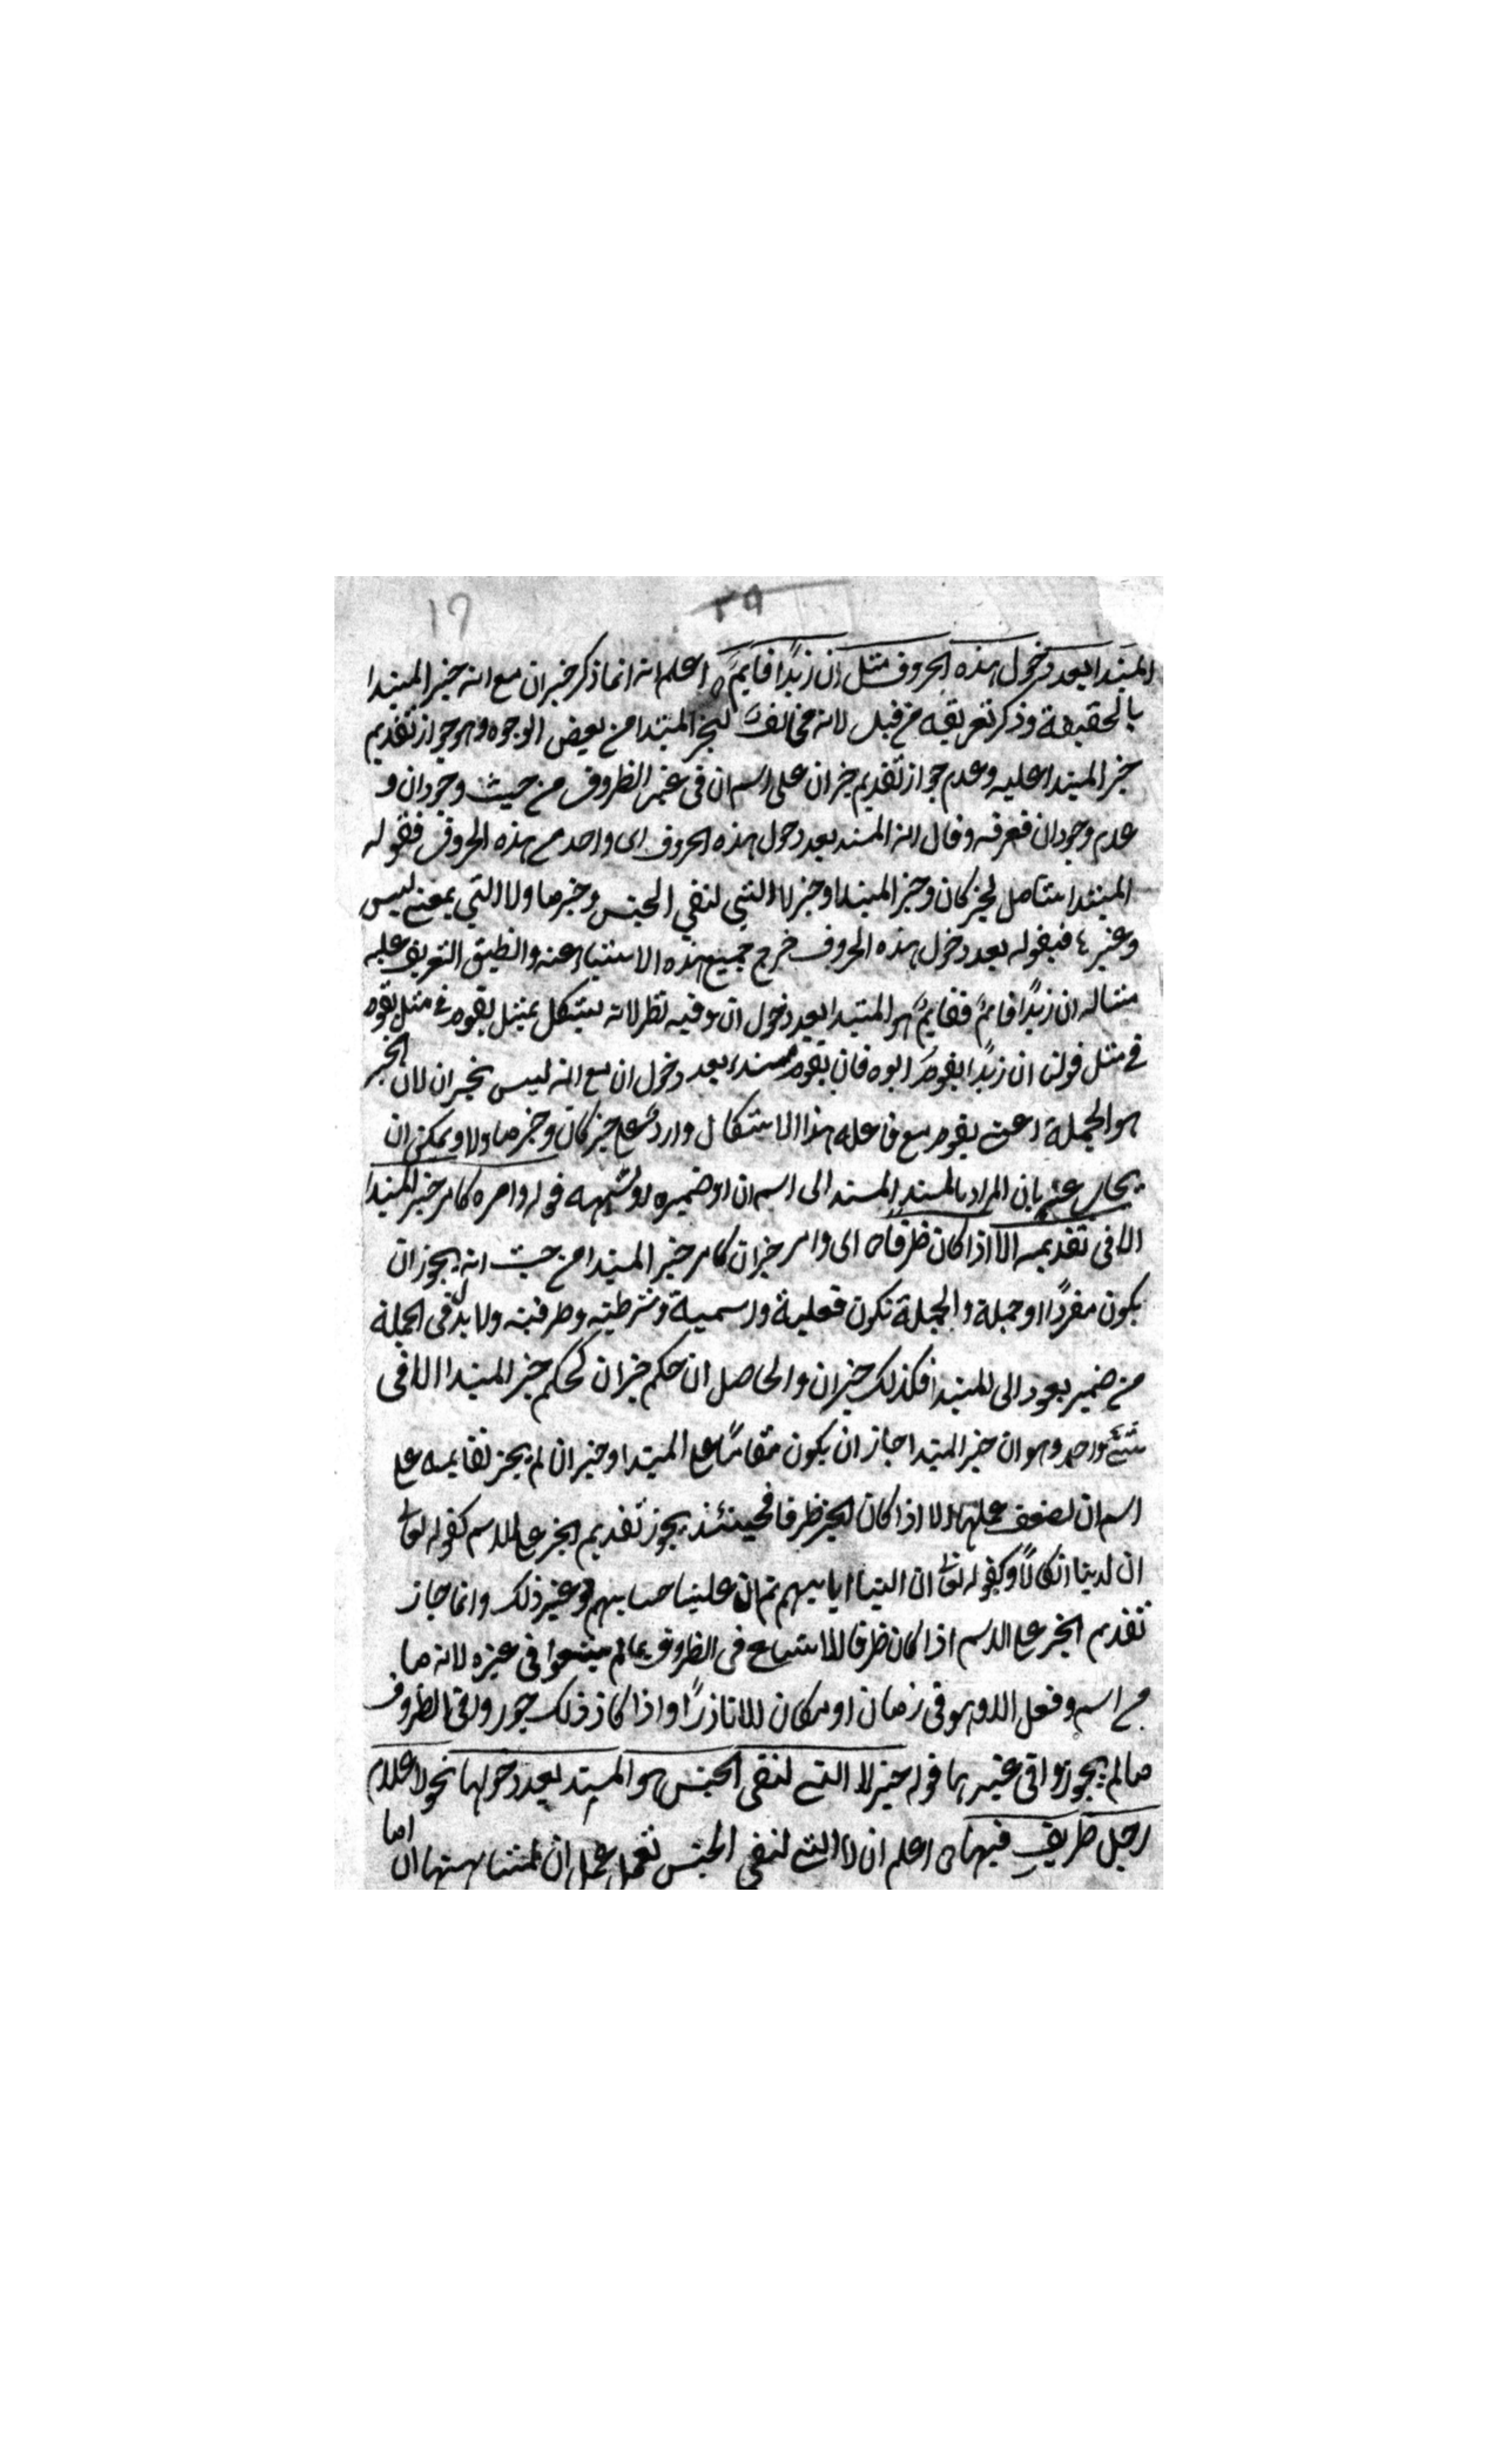 ١٦ ٢٩
المسند بعد دخول هذه الحروف مثل ان زيدًا قايمٌ ه اعلم انه انما ذكر خبر ان مع انه خبر المبتدا
بالحقيقة وذكر تعريفه من قبل لانه مخالفٌ لخبر المبتدا من بعض الوجوه وهو جواز تقديم
خبر المبتدا عليه وعدم جواز تقديم خبر ان على اسم ان في غير الظروف من حيث وجود ان و
عدم وجود ان فعرفه وقال انه المسند بعد دخول هذه الحروف اى واحد من هذه الحروف فقوله
المسند شامل لخبر كان وخبر المبتدا وخبر لا التي لنفي الجنس وخبر ما ولا التي بمعنى ليس
وغيرها فبقوله بعد دخول هذه الحروف خرج جميع هذه الاشياء عنه وانطبق التعريف عليه
مثاله ان زيدًا قايمٌ فقايمٌ هو المسند بعد دخول ان وفيه نظر لانه يشكل بمثل يقوم في مثل يقوم
في مثل قولنا ان زيدًا يقوم ابوه فان يقوم مسند بعد دخول ان مع انه ليس بخبر ان لان الخبر
هو الجملة اعنى يقوم مع فاعله هذا الاشكال واردٌ على خبر كان وخبر ما ولا ويمكن ان
يجاب عنه بان المراد بالمسند المسند الى اسم ان او ضميره او شبهه قوله وامره كامر خبر المبتدا
الا في تقديمه الا اذا كان ظرفًا ه اى وامر خبر ان كامر خبر المبتدا من حيث انه يجوز ان
يكون مفردًا او جملة والجملة تكون فعلية واسمية وشرطية وظرفية ولا بد في الجملة
من ضمير يعود الى المبتدا فكذلك خبر ان والحاصل ان حكم خبر ان كحكم خبر المبتدا الا في
شئ واحد وهو ان خبر المبتدا جاز ان يكون مقدمًا على المبتدا وخبر ان لم يجز تقديمه على
اسم ان لضعف عملها الا اذا كان الخبر ظرفا فحينئذ يجوز تقديم الخبر على الاسم كقوله تعالى
ان لدينا انكالًا وكقوله تعالى ان الينا ايابهم ثم ان علينا حسابهم وغير ذلك وانما جاز
تقديم الخبر على الاسم اذا كان ظرفا للاتساع في الظروف ما لم يتسعوا في غيره لانه ما
من اسم وفعل الا وهو في زمان او مكان الا نادرًا واذا كان ذلك جوزوا في الظروف
ما لم يجوزوا في غيرها قوله خبر لا التي لنفي الجنس هو المسند بعد دخولها نحو لا غلام
رجل ظريف فيها ه اعلم ان لا التي لنفي الجنس تعمل عمل ان لمشابهتها ان
اما